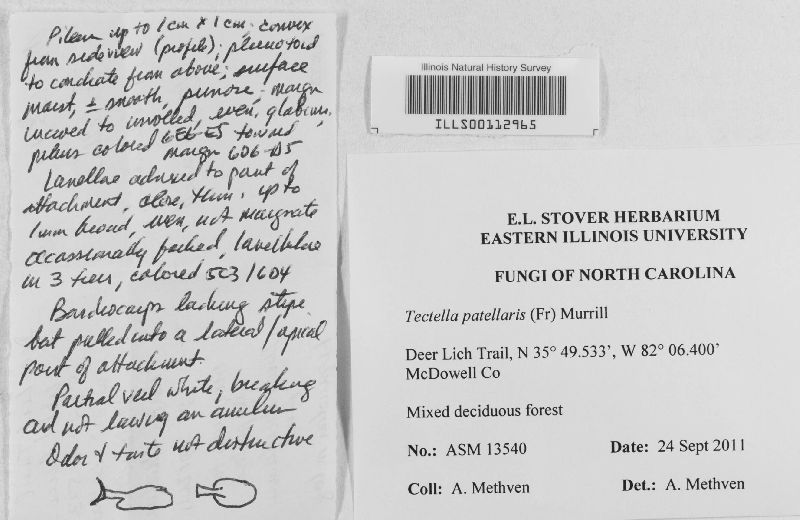 Pileus up to 1cm x 1cm; convex
from sideview (profile); pleurotoid
to conchate from above; surface
moist, ± smooth, ; margin
incurved to unrolled, even, glabrous,
pileus colored 6E6-E5 toward
margin 6D6-D5
Lamellae adnexed to point of
attachment, close, thin, up to
1mm broad, even, not marginate
occassionally forked, lamellulae
in 3 tiers, colored 5C3/6D4
Basidiocarps lacking stipe
but pulled into a lateral/apical
point of attachment.
Partial veil white, breaking
and not leaving an annulus
Odor & taste not distinctive
Illinois Natural History Survey
ILLS00112965
E.L. STOVER HERBARIUM
EASTERN ILLINOIS UNIVERSITY
FUNGI OF NORTH CAROLINA
Tectella patellaris (Fr) Murrill
Deer Lich Trail, N 35° 49.533’, W 82° 06.400’
McDowell Co
Mixed deciduous forest
No.: ASM 13540 Date: 24 Sept 2011
Coll: A. Methven Det.: A. Methven